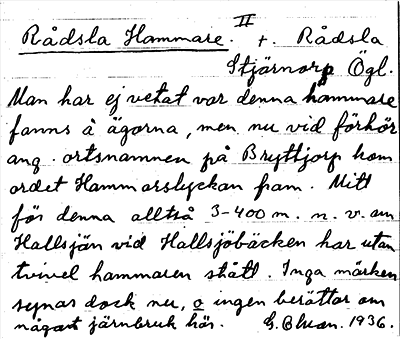 Rådsla Hammare. II +. Rådsla
Stjärnorp Ögl.
Man har ej vetat var denna hammare
fanns å ägorna, men nu vid förhör
ang. ortsnamnen på Bryttjorp kom
ordet Hammarslyckan fram. Mitt
för denna alltså 3-400 m. n. v. om
Hallsjön vid Hallsjöbäcken har utan
tvivel hammaren stått. Inga märken
synas dock nu, o ingen berättar om
något järnbruk här. 1936.